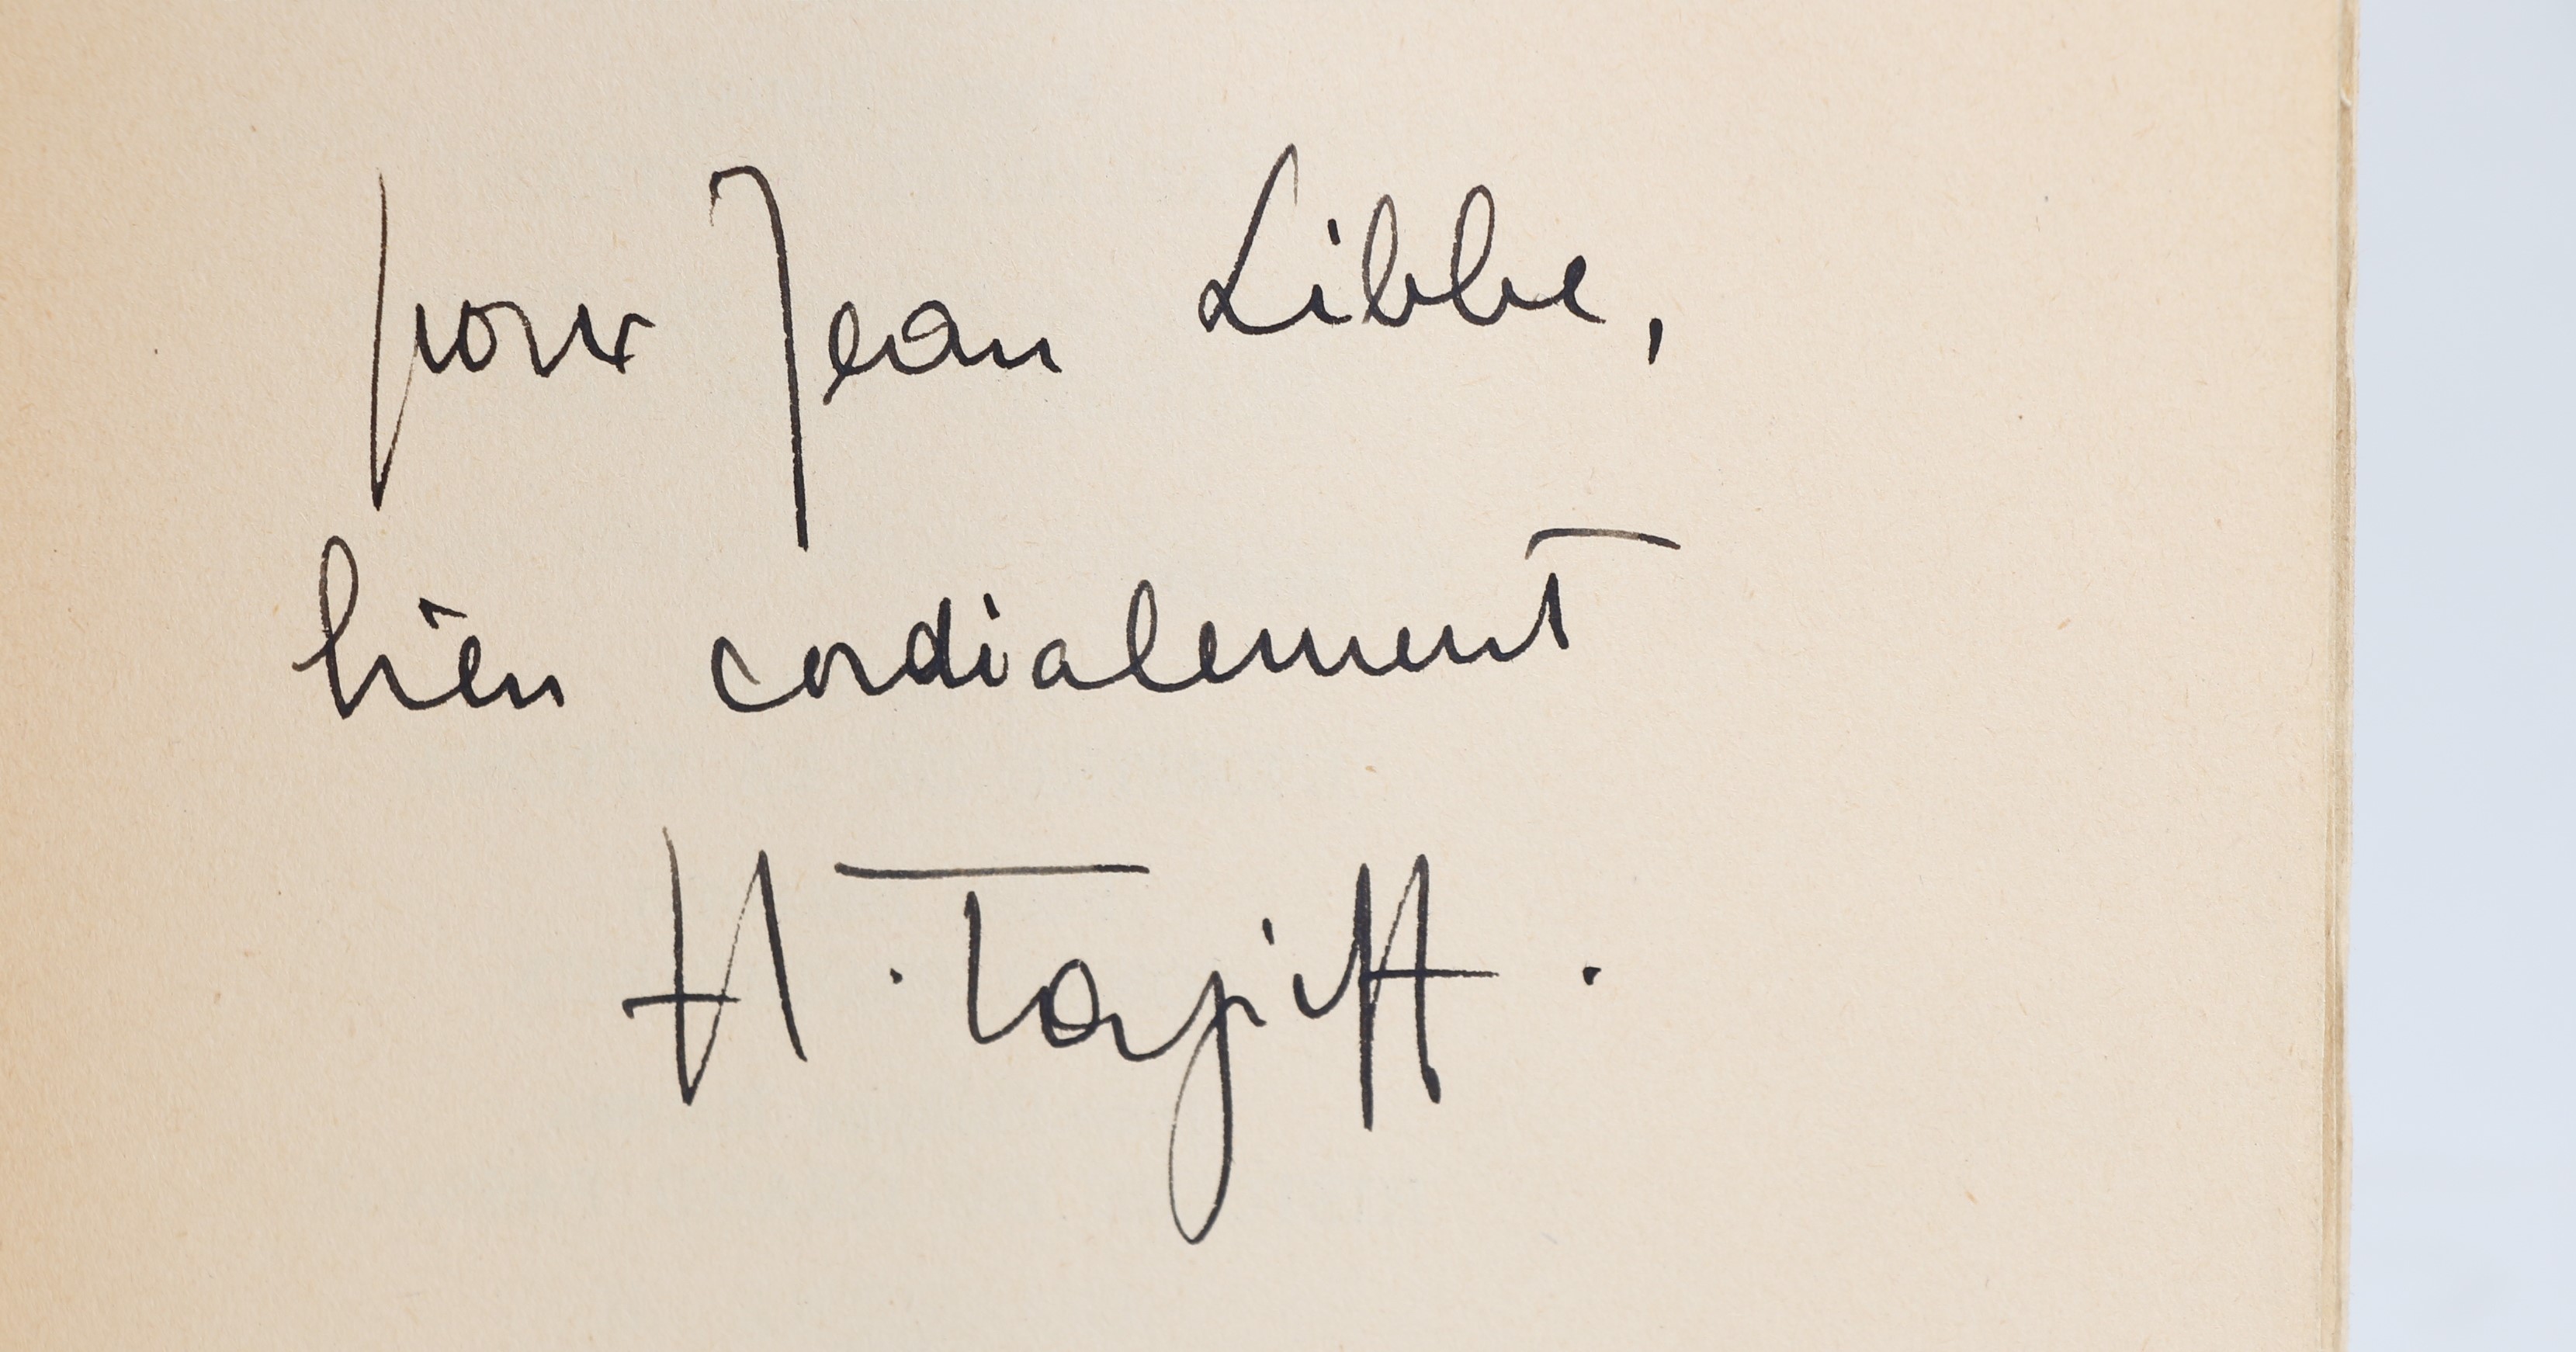 pour Jean Libbe,
bien cordialement
H. Tazieff.